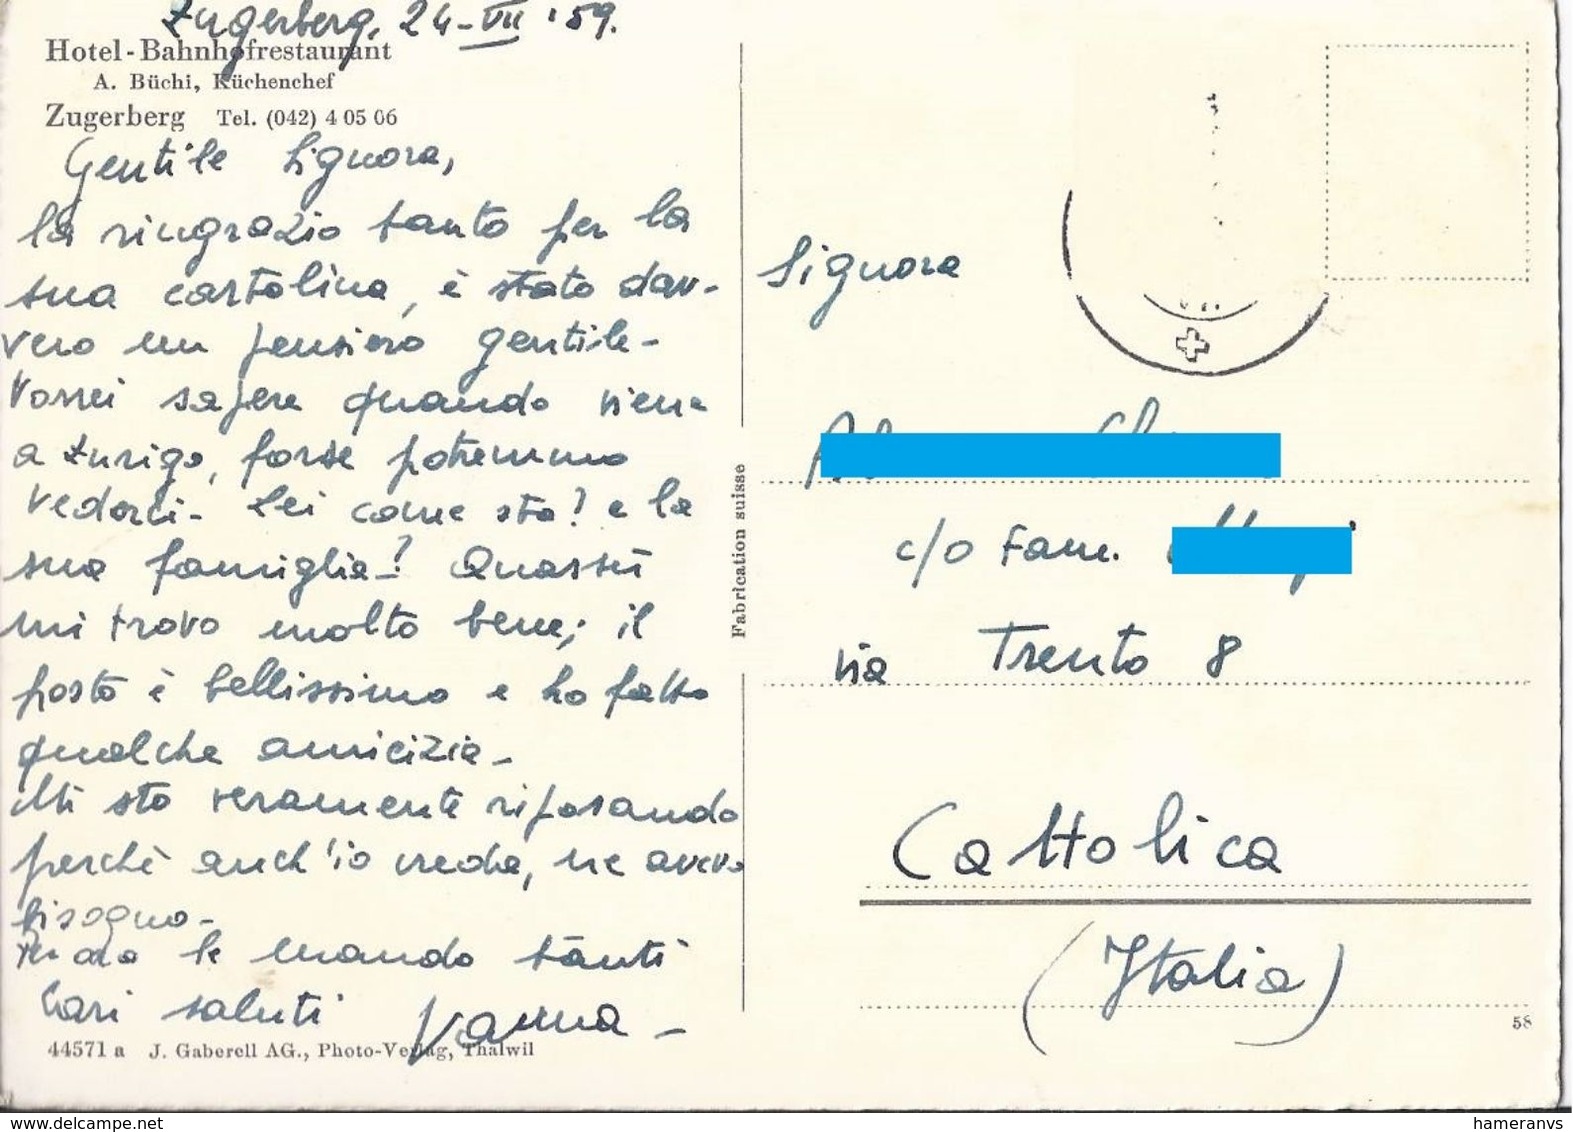 Zugerberg, 24-VII '59.
Hotel-Bahnhofrestaurant
A. Büchi, Küchenchef
Zugerberg Tel. (042) 4 05 06
Gentile Signora,
la ringrazio tanto per la
sua cartolina, è stato dav-
vero un pensiero gentile-
Vorrei sapere quando viene
a Zurigo, forse potremmo
vederci- Lei come sta? e la
sua famiglia-? Quassù
mi trovo molto bene; il
posto è bellissimo e ho fatto
qualche amicizia-
Mi sto veramente riposando
perchè anch'io creda, ne avevo
bisogno-
le mando tanti
cari saluti Vanna-
44571 a J. Gaberell AG., Photo-Verlag, Thalwil
Fabrication suisse
Signora
c/o Fam.
via Trento 8
Cattolica
(Italia)
58
www.delcampe.net
hameranvs